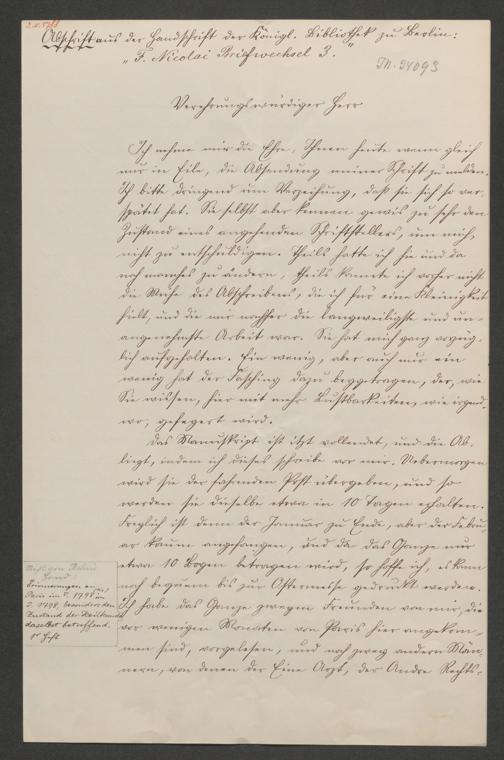 Abschrift aus der Handschrift der Königl. Bibliothek zu Berlin:
"F. Nicolai Briefwechsel 3."
Verehrungswürdiger Herr
Ich nehme mir die Ehre, Ihnen heute wenn gleich
nur in Eile, die Absendung meiner Schrift zu melden.
Ich bitte dringend um Verzeihung, daß sie sich so ver-
spätet hat. Sie selbst aber kennen gewis zu sehr den
Zustand eines angehenden Schriftstellers, um mich
nicht zu entschuldigen. Theils hatte ich hie und da
noch manches zu ändern, theils kannte ich vorher nicht
die Mühe des Abschreibens, die ich für eine Kleinigkeit
hielt, und die mir nachher die langweiligste und un-
angenehmste Arbeit war. Sie hat mich ganz vorzüg-
lich aufgehalten. Ein wenig, aber auch nur ein
wenig hat der Fasching dazu beygetragen, der, wie
Sie wissen, hier mit mehr Lustbarkeiten, wie irgend-
wo, gefeyert wird.
Das Manuskript ist itzt vollendet, und die Ab.
liegt, indem ich dieses schreibe vor mir. Uebermorgen
wird sie der fahrenden Post übergeben, und so
werden sie dieselbe etwa in 10 Tagen erhalten.
Freylich ist denn der Januar zu Ende, aber der Febru-
ar kaum angefangen, und da das Ganze nur
etwa 10 Bogen betragen wird, so hoffe ich, es kann
noch bequem bis zur Ostermesse gedruckt werden.
Ich habe das Ganze zweyen Freunden von mir, die
vor wenigen Monaten von Paris hier angekom-
men sind, vorgelesen, und noch zwey andern Män-
nern, von denen der Eine Arzt, der Andre Rechts-
Erinnerungen an
Paris im J. 1798
besonders den
Zustand der
daselbst betreffend.
1s Heft